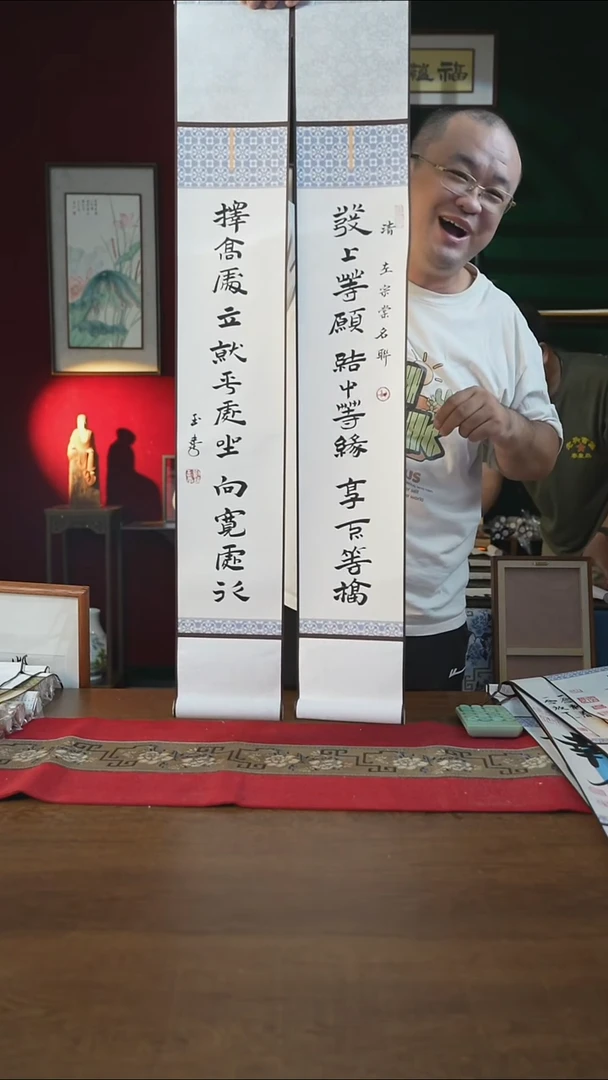 發上等願結中等緣享下等福
清 左宗棠名聯
擇高處立就平處坐向寬處行
玉書